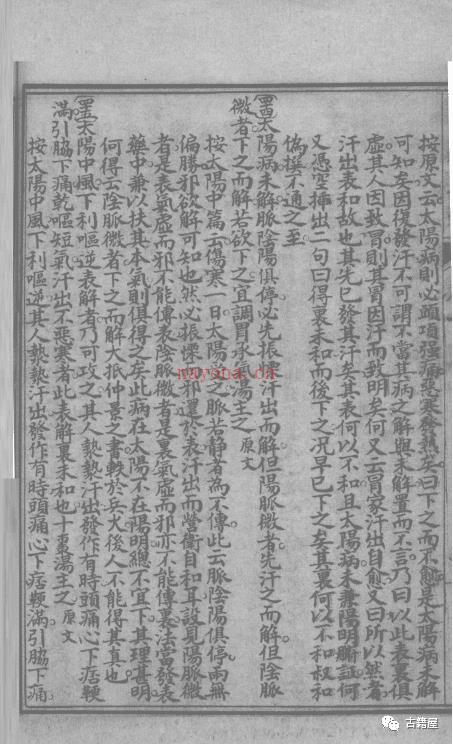 按原文云太陽病則必頭項强痛惡寒發熱矣曰下之而不愈是太陽病未解
可知矣因復發汗不可謂不當其病之解與未解置而不言乃曰以此表裏俱
虛其人因致冒則其冒因汗而致明矣何又云冒家汗出自愈又曰所以然者
汗出表和故也其先已發其汗矣其表何以不和且太陽病未兼陽明腑証何
又憑空揷出二句曰得裏未和而後下之况早已下之矣其裏何以不和叔和
偽撰不通之至
太陽病未解脈陰陽俱停必先振慄汗出而解但陽脈微者先汗之而解但陰脈
微者下之而解若欲下之宜調胃承氣湯主之 原文
按太陽中篇云傷寒一日太陽受之脈若靜者為不傳此云脈陰陽俱停兩無
偏勝邪欲解可知也然必振慄者邪還於表汗出而營衛自和耳設見陽脈微
者是表氣虛而邪不能傳表陰脈微者是裏氣虛而邪亦不能傳裏法當發表
藥中兼以扶其本氣則俱得之矣此病在太陽不在陽明總不宜下其理甚明
何得云陰脈微者下之而解大抵仲景之書軼於兵火後人不能得其真也
太陽中風下利嘔逆表解者乃可攻之其人漐漐汗出發作有時頭痛心下痞鞕
滿引脇下痛乾嘔短氣汗出不惡寒者此表解裏未和也十棗湯主之 原文
按太陽中風下利嘔逆其人漐漐汗出發作有時頭痛心下痞鞕滿引脇下痛
nayona.cn
古籍屋